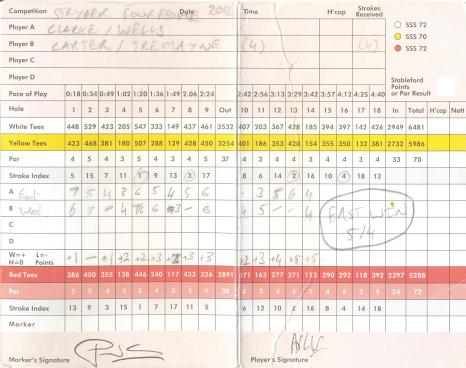 Competition STRYDER FOURSOMES Date 2012 Time H'cap Strokes Received
Player A CLARKE / WELLS
Player B CARTER / TREMAYNE (4) (4)
Player C
Player D
SSS 72
SSS 70
SSS 72
Stableford Points or Par Result
Pace of Play 0:18 0:34 0:49 1:02 1:20 1:36 1:49 2:06 2:24 2:42 2:56 3:13 3:29 3:42 3:57 4:12 4:25 4:40
Hole 1 2 3 4 5 6 7 8 9 Out 10 11 12 13 14 15 16 17 18 In Total H'cap Nett
White Tees 448 529 423 205 547 333 149 437 461 3532 407 203 367 428 185 394 397 142 426 2949 6481
Yellow Tees 423 468 381 180 507 288 129 428 450 3254 401 186 353 420 154 355 350 132 381 2732 5986
Par 4 5 4 3 5 4 3 4 5 37 4 3 4 4 3 4 4 3 4 33 70
Stroke Index 5 15 7 11 1 9 13 3 17 6 12 8 2 16 10 4 18 14
A East 7 5 4 3 6 5 4 5 6 - 3 5 6 4
B West 6 7 - 4 6 - 6 4 5 - - 4
EAST WIN
5/4
C
D
W=+ L=-
H=0 Points -1 +2 +2 +3 +2 +3 +3 +2 +3 +4 +5 +5
Red Tees 386 450 355 138 446 240 117 433 326 2891 371 163 277 371 123 290 292 118 392 2397 5288
Par 5 5 4 3 5 4 3 5 4 38 4 3 4 4 3 4 4 3 5 34 72
Stroke Index 13 9 3 15 1 17 7 11 5 6 12 10 2 16 8 4 14 18
Marker
Marker's Signature
Player's Signature